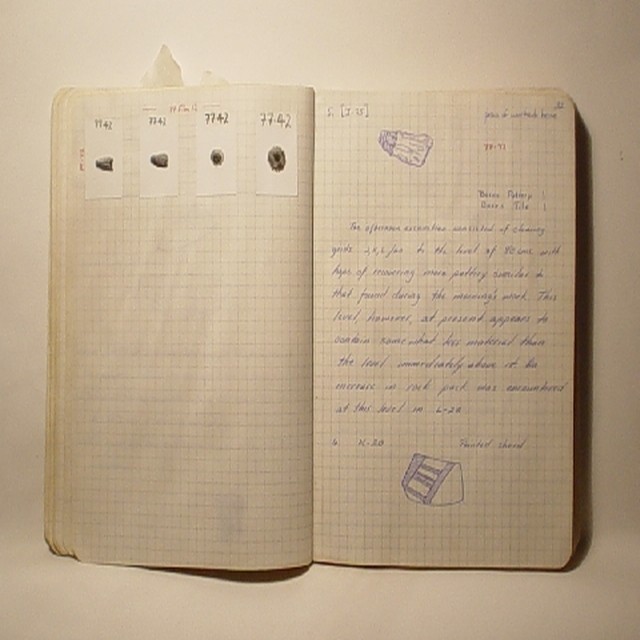 77.42
77.42
77.42
77.42
5. [J-25]
77-71
Boxes Pottery 1
Boxes Tile 1
The afternoon excavation consisted of cleaning
grids to the level of 80 cms with
hope of recovering more pottery similar to
that found during the morning's work. This
level, however, at present appears to
contain somewhat less material than
the level immediately above it. An
increase in rock pack was encountered
at this level in L-20
6. K-20 Painted sherd